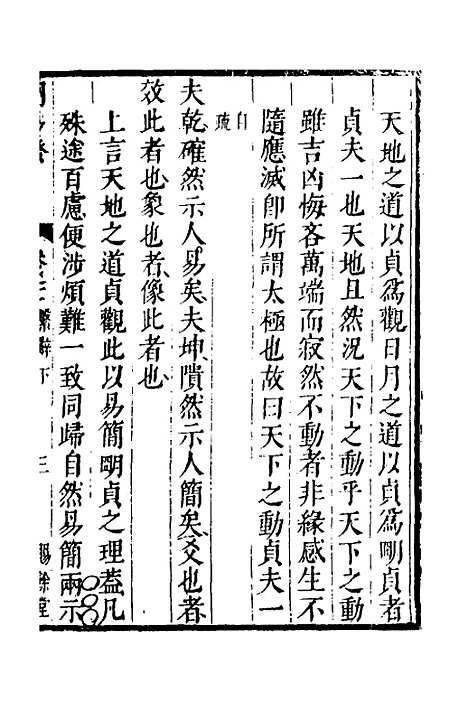 天地之道以貞爲觀日月之道以貞爲明貞者
貞夫一也天地且然況天下之動乎天下之動
雖吉凶悔吝萬端而寂然不動者非緣感生不
隨應滅卽所謂太極也故曰天下之動貞夫一
自疏
夫乾確然示人易矣夫坤隤然示人簡矣爻也者
效此者也象也者像此者也
上言天地之道貞觀此以易簡明貞之理蓋凡
殊途百慮便涉煩難一致同歸自然易簡兩示
卷三 繫辭下 三 賜餘堂